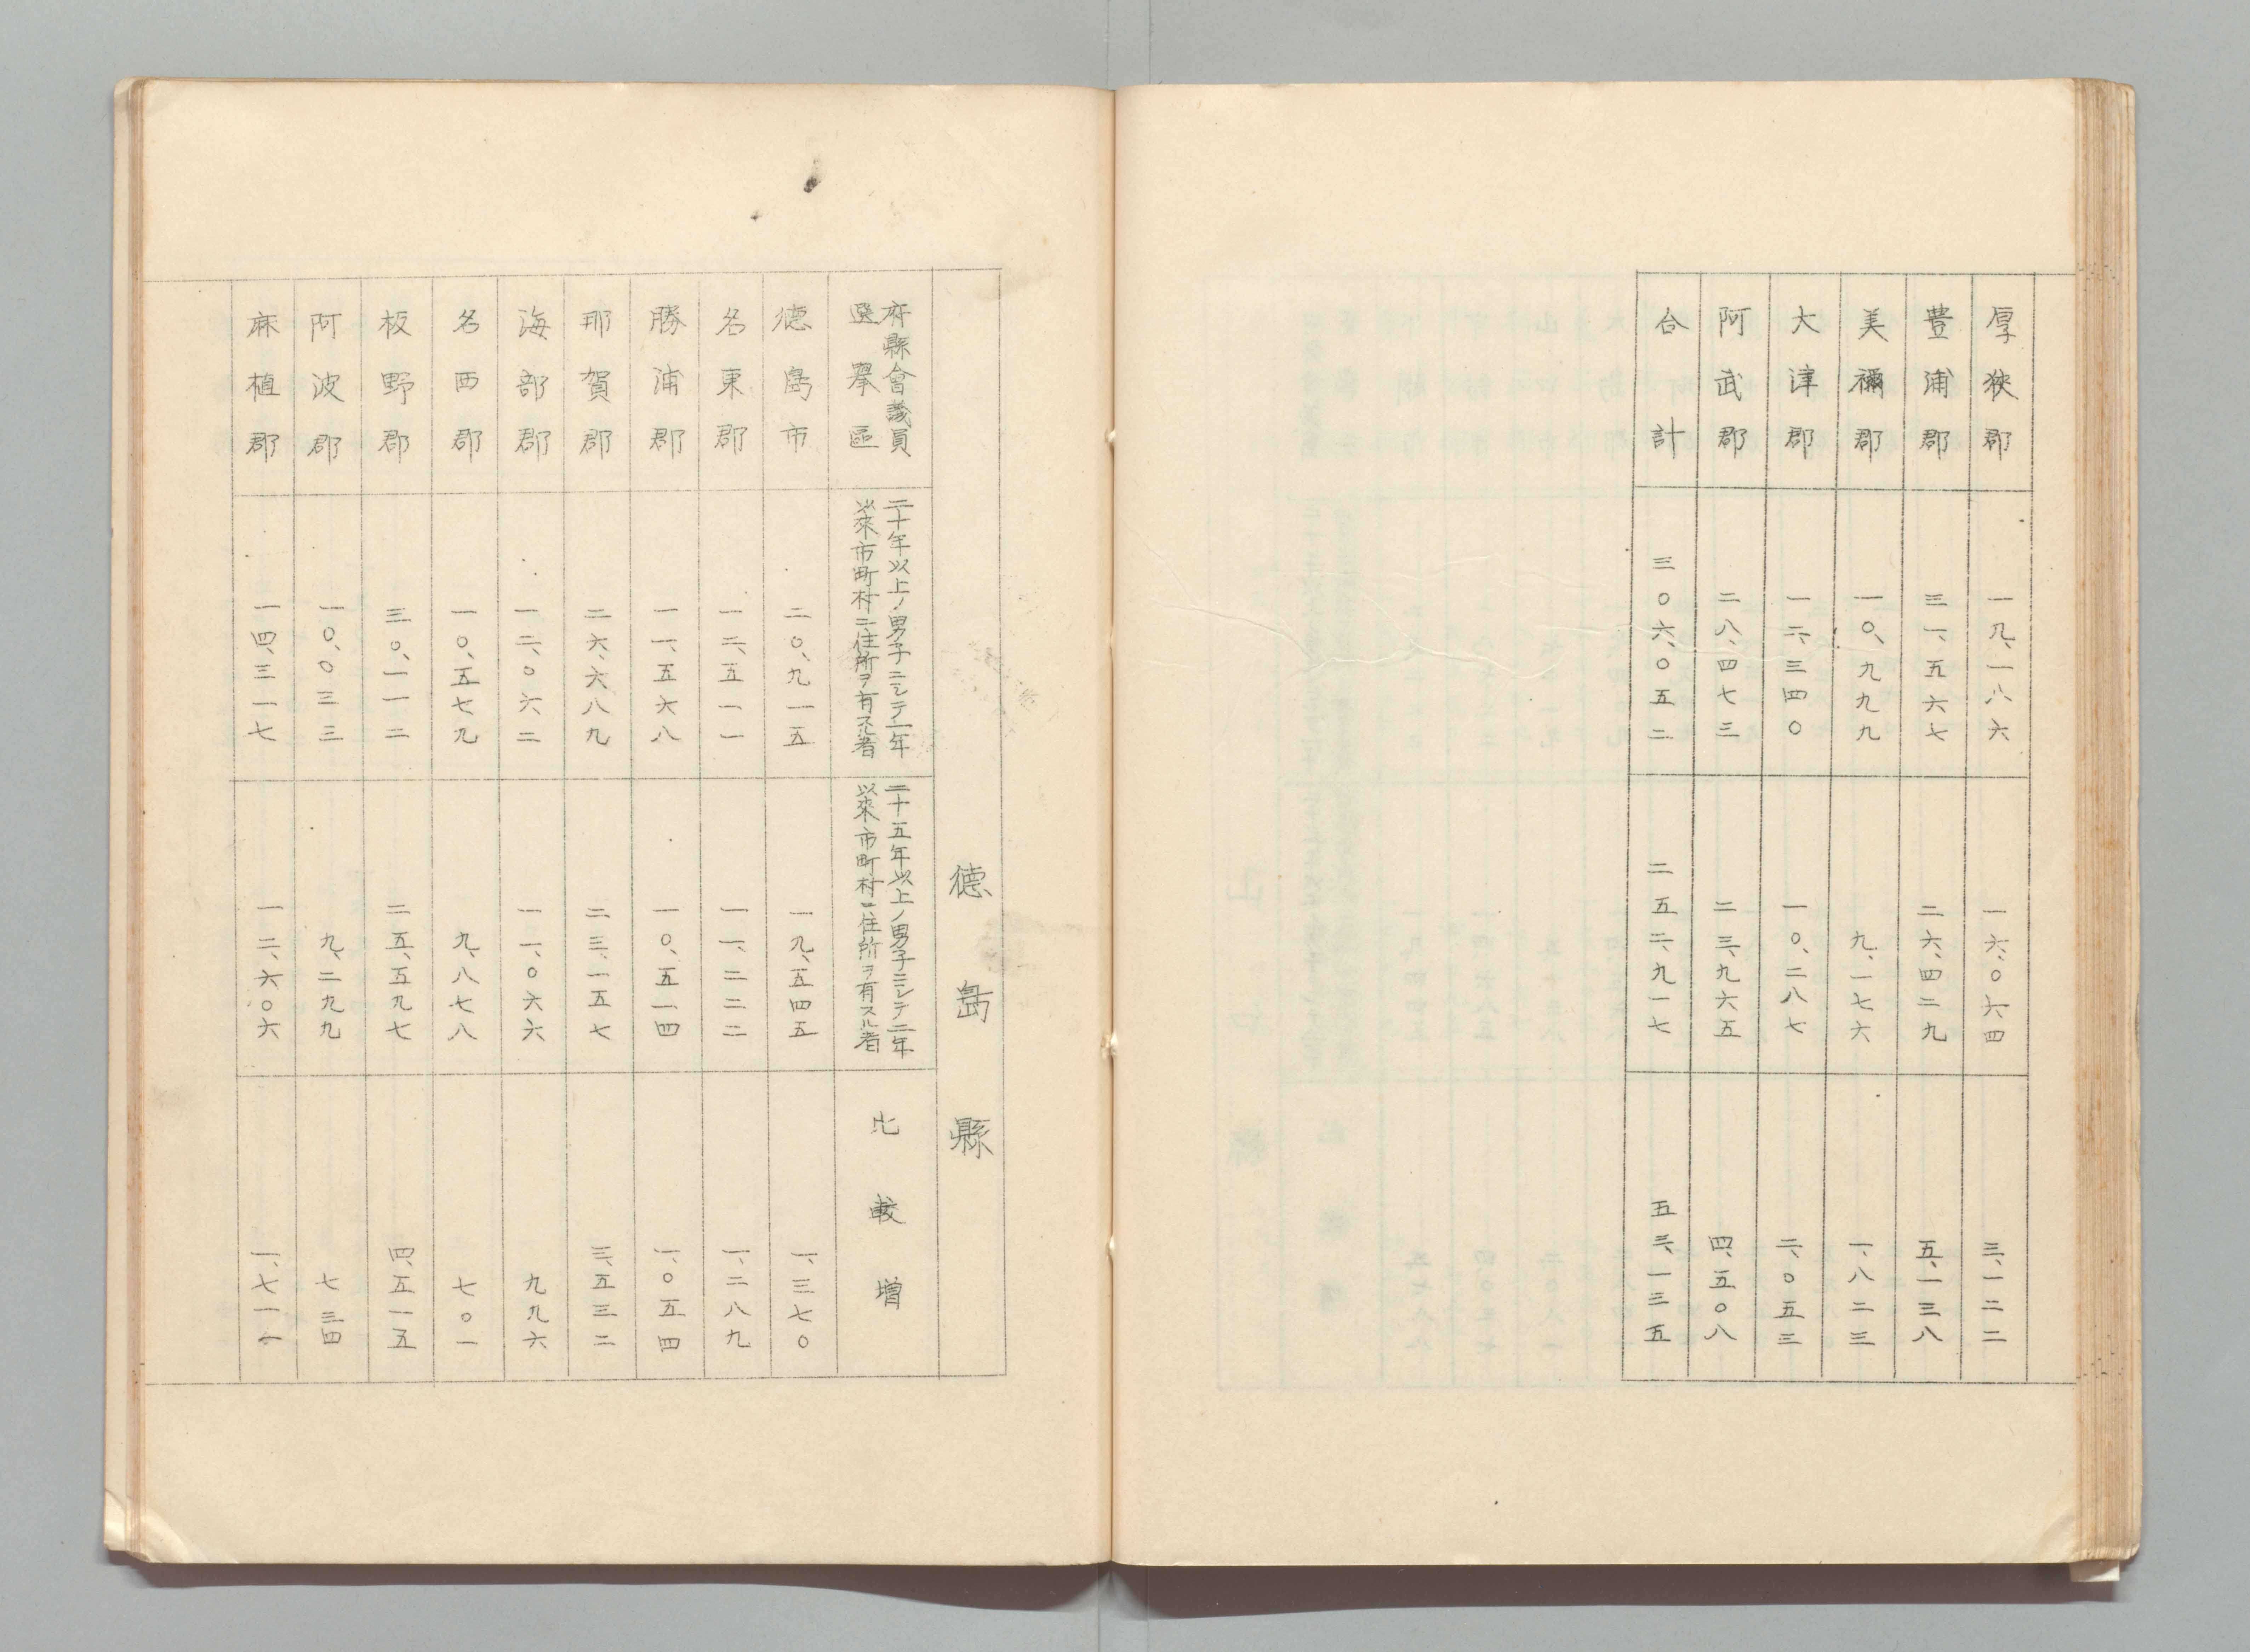 厚狹郡 一九、一八六 一六、〇六四 三、一二二
豊浦郡 三一、五六七 二六、四二九 五、一三八
美禰郡 一〇、九九九 九、一七六 一、八二三
大津郡 一二、三四〇 一〇、二八七 二、〇五三
阿武郡 二八、四七三 二三、九六五 四、五〇八
合計 三〇六、〇五二 二五二、九一七 五三、一三五
德島縣
府縣會議員
選擧區
二十年以上ノ男子ニシテ一年
以來市町村ニ住所ヲ有スル者
二十五年以上ノ男子ニシテ二年
以來市町村ニ住所ヲ有スル者
比載増
德島市 二〇、九一五 一九、五四五 一、三七〇
名東郡 一二、五一一 一一、二二二 一、二八九
勝浦郡 一一、五六八 一〇、五一四 一、〇五四
那賀郡 二六、六八九 二三、一五七 三、五三二
海部郡 一二、〇六二 一一、〇六六 九九六
名西郡 一〇、五七九 九、八七八 七〇一
板野郡 三〇、一一二 二五、五九七 四、五一五
阿波郡 一〇、〇三三 九、二九九 七三四
麻植郡 一四、三一七 一二、六〇六 一、七一一